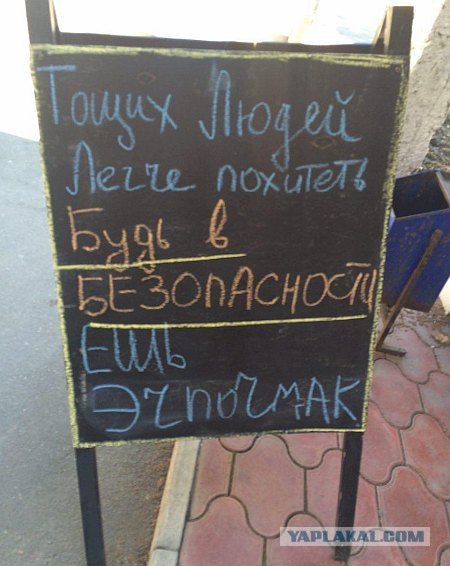 Тощих Людей
Легче похитеть
Будь в
БЕЗОПАСНОСТИ
ЕШЬ
ЭЧПОЧМАК
YAPLAKAL.COM